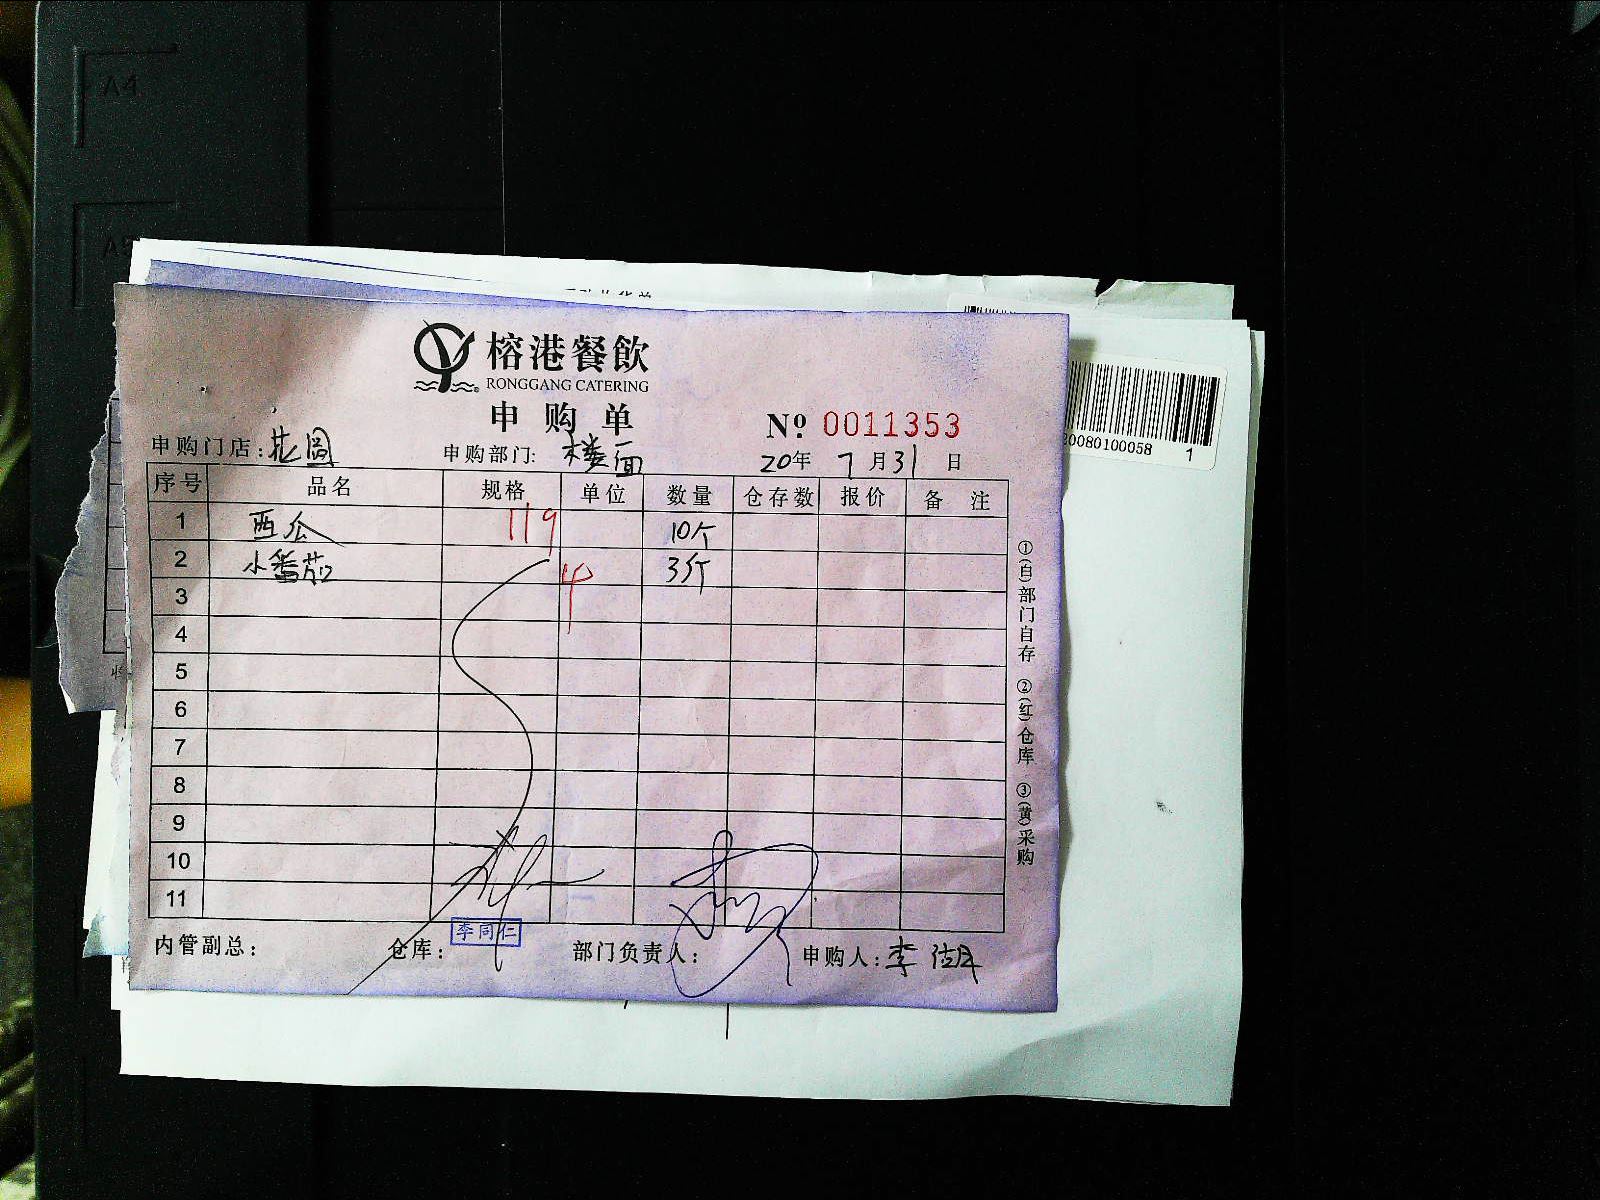 A4
A5
榕港餐飲
RONGGANG CATERING
申购单
№ 0011353
申购门店:花园 申购部门: 楼面 20年 7月31日
序号 品名 规格 单位 数量 仓存数 报价 备注
1 西瓜 119 10个
2 小番茄 4 3斤
3
4
5
6
7
8
9
10
11
内管副总: 仓库: 李同仁 部门负责人: 申购人:李
①(白)部门自存 ②(红)仓库 ③(黄)采购
20080100058 1